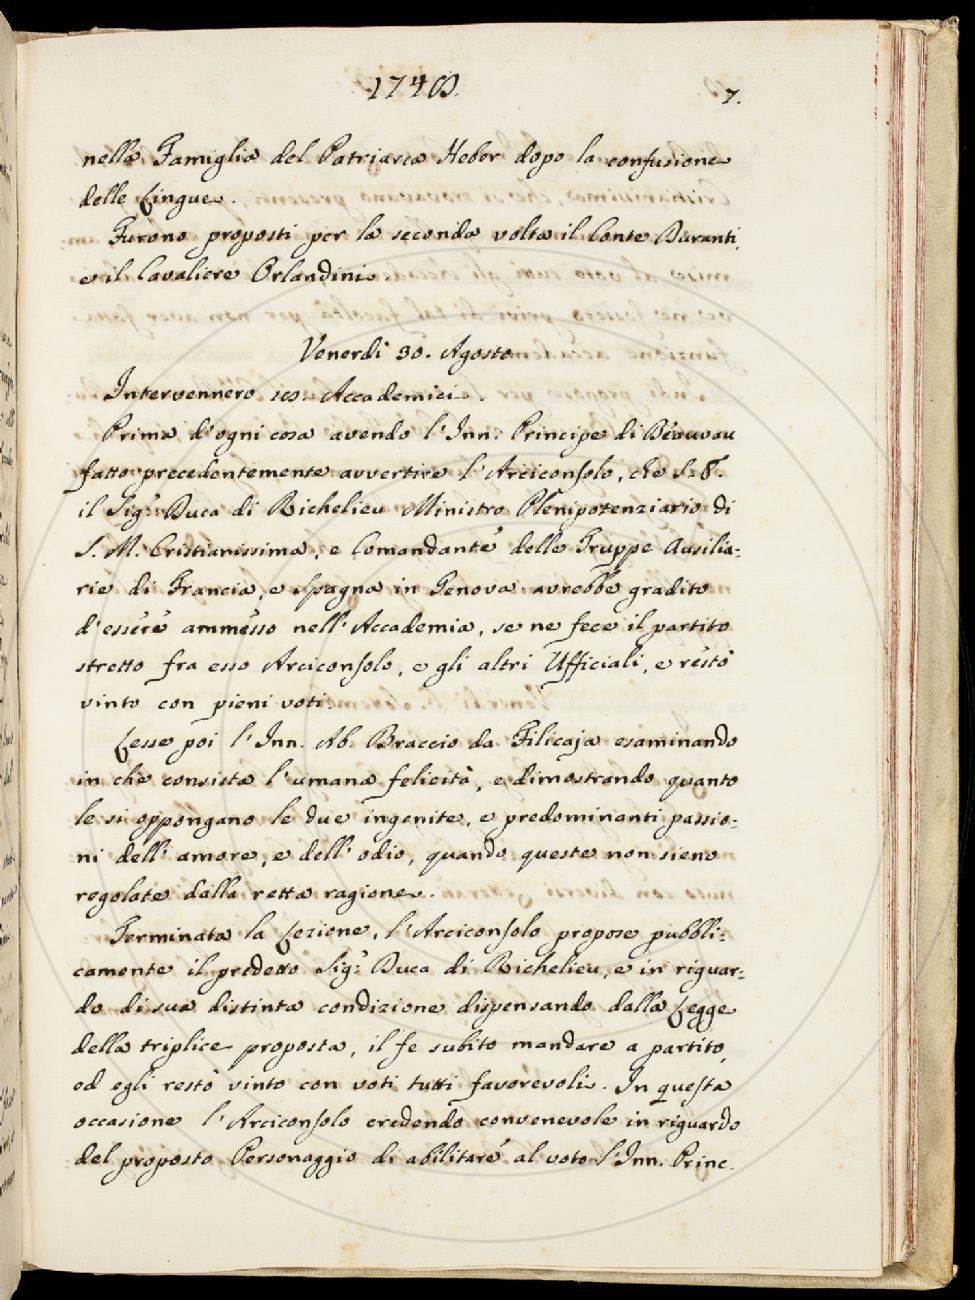 1748.
7.
nella Famiglia del Patriarca Heber dopo la confusione
delle Lingue.
Furono proposti per la seconda volta il Conte Duranti,
e il Cavaliere Orlandini.
Venerdì 30. Agosto
Intervennero 20. Accademici.
Prima d'ogni cosa avendo l'Inn: Principe di Beauvau
fatto precedentemente avvertire l'Arciconsolo, che S. E.
il Sig: Duca di Richelieu Ministro Plenipotenziario di
S. M. Cristianissima, e Comandante delle Truppe Ausilia:
rie di Francia, e Spagna in Genova avrebbe gradito
d'essere ammesso nell'Accademia, se ne fece il partito
stretto fra esso Arciconsolo, e gli altri Ufficiali, e restò
vinto con pieni voti.
Lesse poi l'Inn. Ab. Braccio da Filicaja esaminando
in che consista l'umana felicità, e dimostrando quanto
le si oppongano le due ingenite, e predominanti passio:
ni dell'amore, e dell'odio, quando queste non sieno
regolate dalla retta ragione.
Terminata la Lezione, l'Arciconsolo propose pubbli:
camente il predetto Sig: Duca di Richelieu, e in riguar:
do di sua distinta condizione dispensando dalla Legge
della triplice proposta, il fe subito mandare a partito,
ed egli restò vinto con voti tutti favorevoli. In questa
occasione l'Arciconsolo credendo convenevole in riguardo
del proposto Personaggio di abilitare al voto l'Inn. Princ.